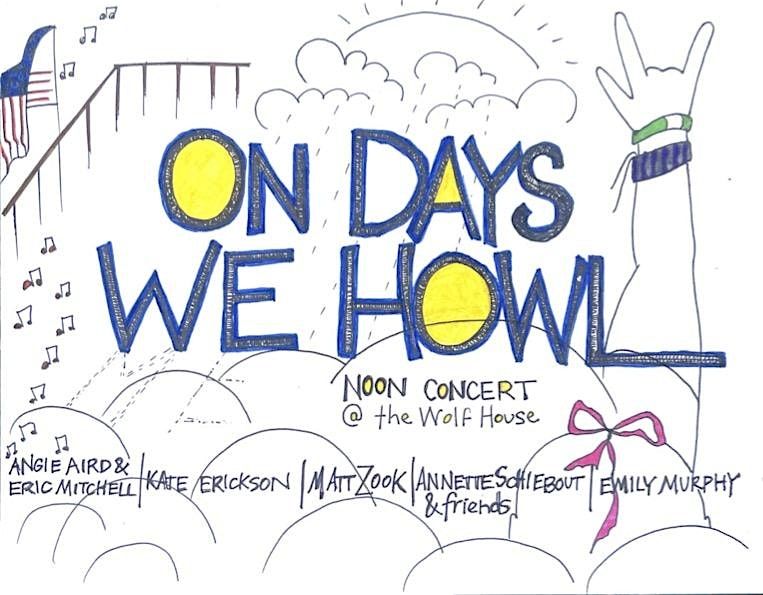 ON DAYS
WE HOWL
NOON CONCERT
@ the Wolf House
ANGIE AIRD &
ERIC MITCHELL | KATE ERICKSON | MATT ZOOK | ANNETTE SCHIEBOUT | EMILY MURPHY
& friends